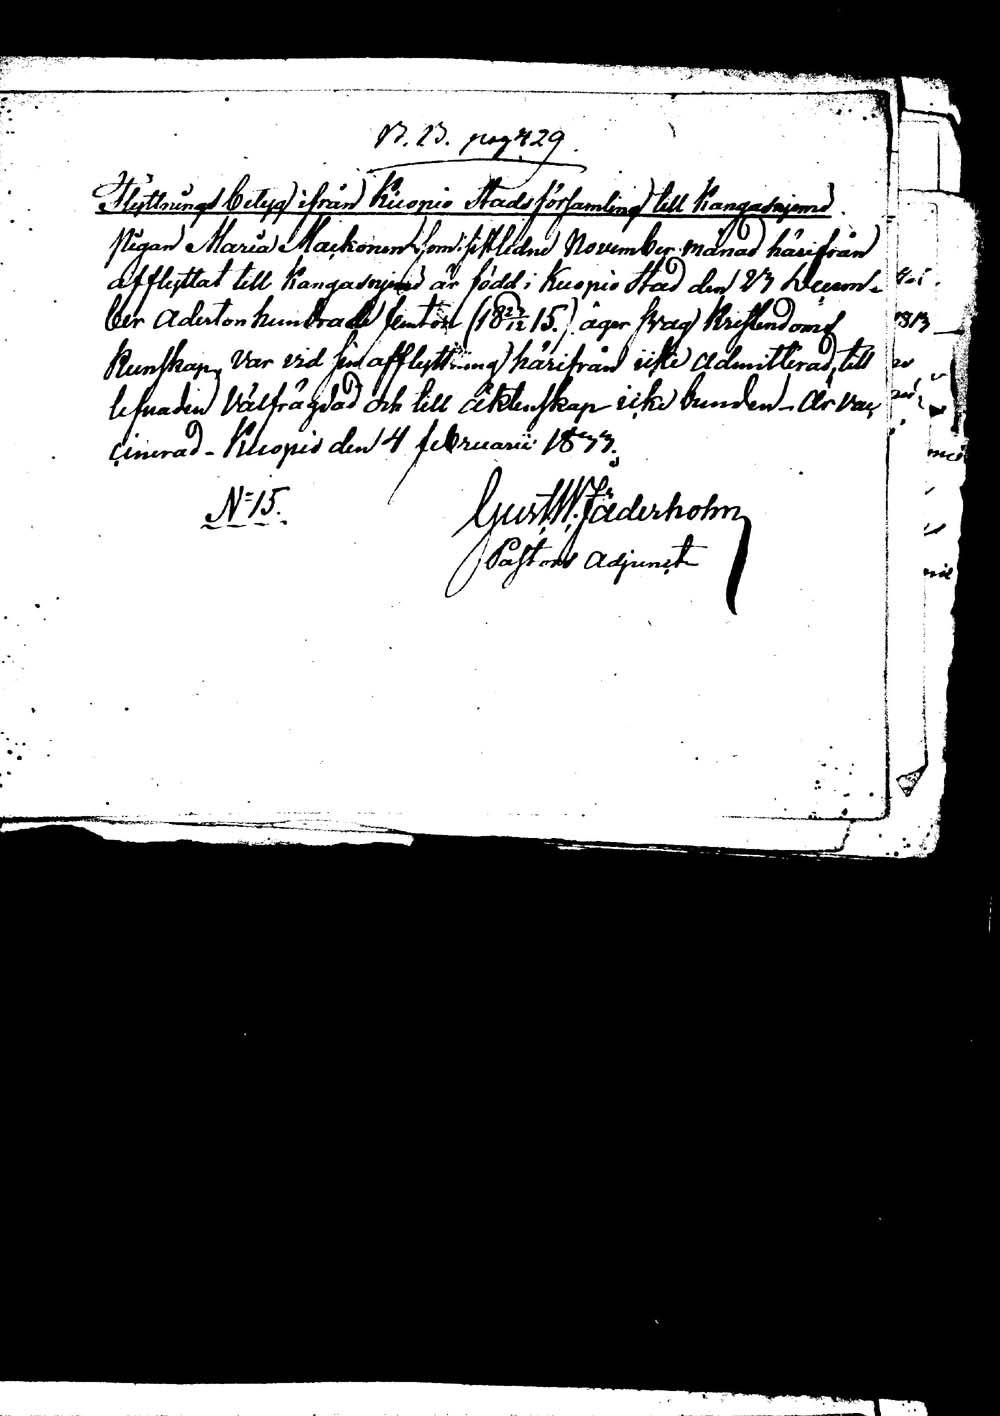 B. 23. pag 429.
Flyttnings betyg ifrån Kuopio Stads församling till Kangasnjemi.
Pigan Maria Maekonen som sistledne November månad härifrån
afflyttat till Kangasnjemi är född i Kuopio Stad den 23 Decem-
ber adertonhundrade femton (18 23/12 15.) äger svag Kristendoms
Kunskap, var vid sin afflyttning härifrån icke admitterad, till
lefnaden välfrägdad och till äktenskap icke bunden - Är vac-
cinerad - Kuopio den 4 februarii 1833.
N=15.
Gust. W. Jäderholm
Pastors adjunct